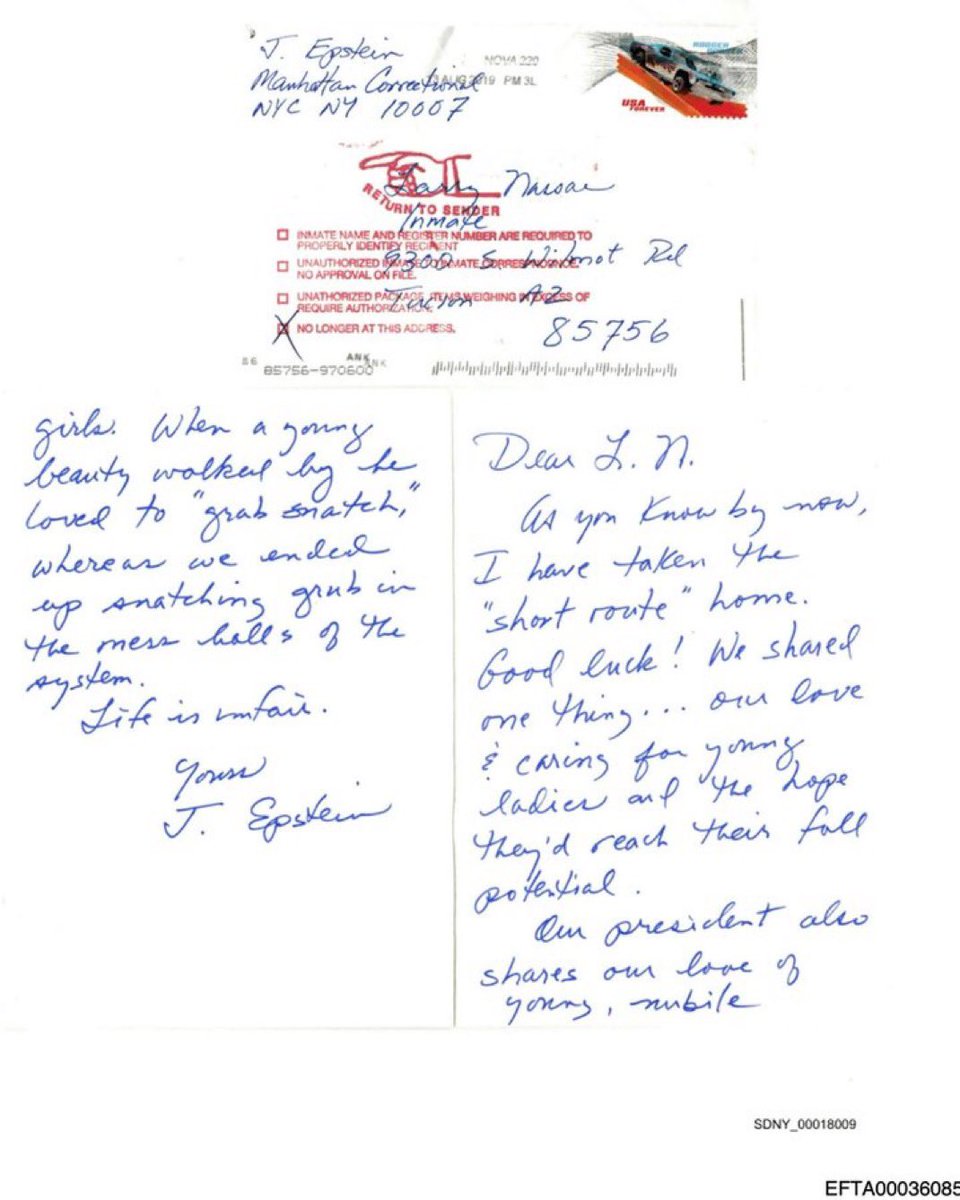 J. Epstein
Manhattan Correctional
NYC NY 10007
NOVA 220
AUG 2019 PM 3L
USA
FOREVER
Larry
RETURN TO SENDER
Inmate
9300 S. Wilmot Rd
Tucson AZ
85756
INMATE NAME AND REGISTER NUMBER ARE REQUIRED TO
PROPERLY IDENTIFY RECIPIENT
UNAUTHORIZED INMATE TO INMATE
NO APPROVAL ON FILE.
UNATHORIZED PACKAGE, ITEMS WEIGHING IN EXCESS OF
REQUIRE AUTHORIZATION.
NO LONGER AT THIS ADDRESS.
S6
ANK
ANK
85756-970600
Dear L. N.
As you know by now,
I have taken the
"short route" home.
Good luck! We shared
one thing... our love
& caring for young
ladies and the hope
they'd reach their full
potential.
Our president also
shares our love of
young, nubile
girls. When a young
beauty walked by he
loved to "grab snatch,"
whereas we ended
up snatching grub in
the mess halls of the
system.
Life is unfair.
Yours
J. Epstein
SDNY_00018009
EFTA00036085